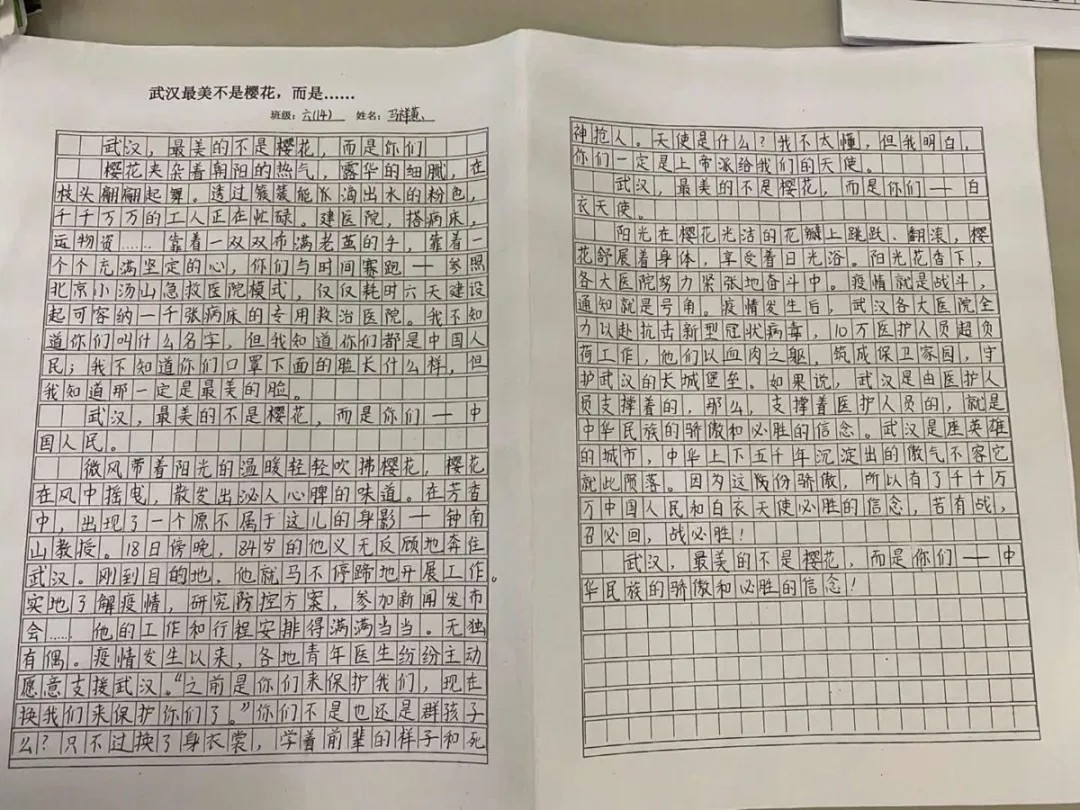 武汉最美不是樱花，而是……
班级：六(14) 姓名：马祥英
武汉，最美的不是樱花，而是你们
樱花夹杂着朝阳的热气，露华的细腻，在
枝头翩翩起舞。透过簇簇能水滴出水的粉色，
千千万万的工人正在忙碌。建医院，搭病床，
运物资……靠着一双双布满老茧的手，靠着一
个个充满坚定的心，你们与时间赛跑——参照
北京小汤山急救医院模式，仅仅耗时六天建设
起可容纳一千张病床的专用救治医院。我不知
道你们叫什么名字，但我知道你们都是中国人
民；我不知道你们口罩下面的脸长什么样，但
我知道那一定是最美的脸。
武汉，最美的不是樱花，而是你们——中
国人民。
微风带着阳光的温暖轻轻吹拂樱花，樱花
在风中摇曳，散发出泌人心脾的味道。在芳香
中，出现了一个原不属于这儿的身影——钟南
山教授。18日傍晚，84岁的他义无反顾地奔住
武汉。刚到目的地，他就马不停蹄地开展工作。
实地了解疫情，研究防控方案，参加新闻发布
会……他的工作和行程安排得满满当当。无独
有偶。疫情发生以来，各地青年医生纷纷主动
愿意支援武汉。“之前是你们来保护我们，现在
换我们来保护你们了。”你们不是也还是群孩子
么？只不过换了身衣裳，学着前辈的样子和死
神抢人。天使是什么？我不太懂，但我明白，
你们一定是上帝派给我们的天使。
武汉，最美的不是樱花，而是你们——白
衣天使。
阳光在樱花光洁的花瓣上跳跃、翻滚，樱
花舒展着身体，享受着日光浴。阳光花香下，
各大医院努力紧张地奋斗中。疫情就是战斗，
通知就是号角。疫情发生后，武汉各大医院全
力以赴抗击新型冠状病毒，10万医护人员超负
荷工作，他们以血肉之躯，筑成保卫家园，守
护武汉的长城堡垒。如果说，武汉是由医护人
员支撑着的，那么，支撑着医护人员的，就是
中华民族的骄傲和必胜的信念。武汉是座英雄
的城市，中华上下五千年沉淀出的傲气不容它
就此陨落。因为这份骄傲，所以有了千千万
万中国人民和白衣天使必胜的信念，若有战，
召必回，战必胜！
武汉，最美的不是樱花，而是你们——中
华民族的骄傲和必胜的信念！